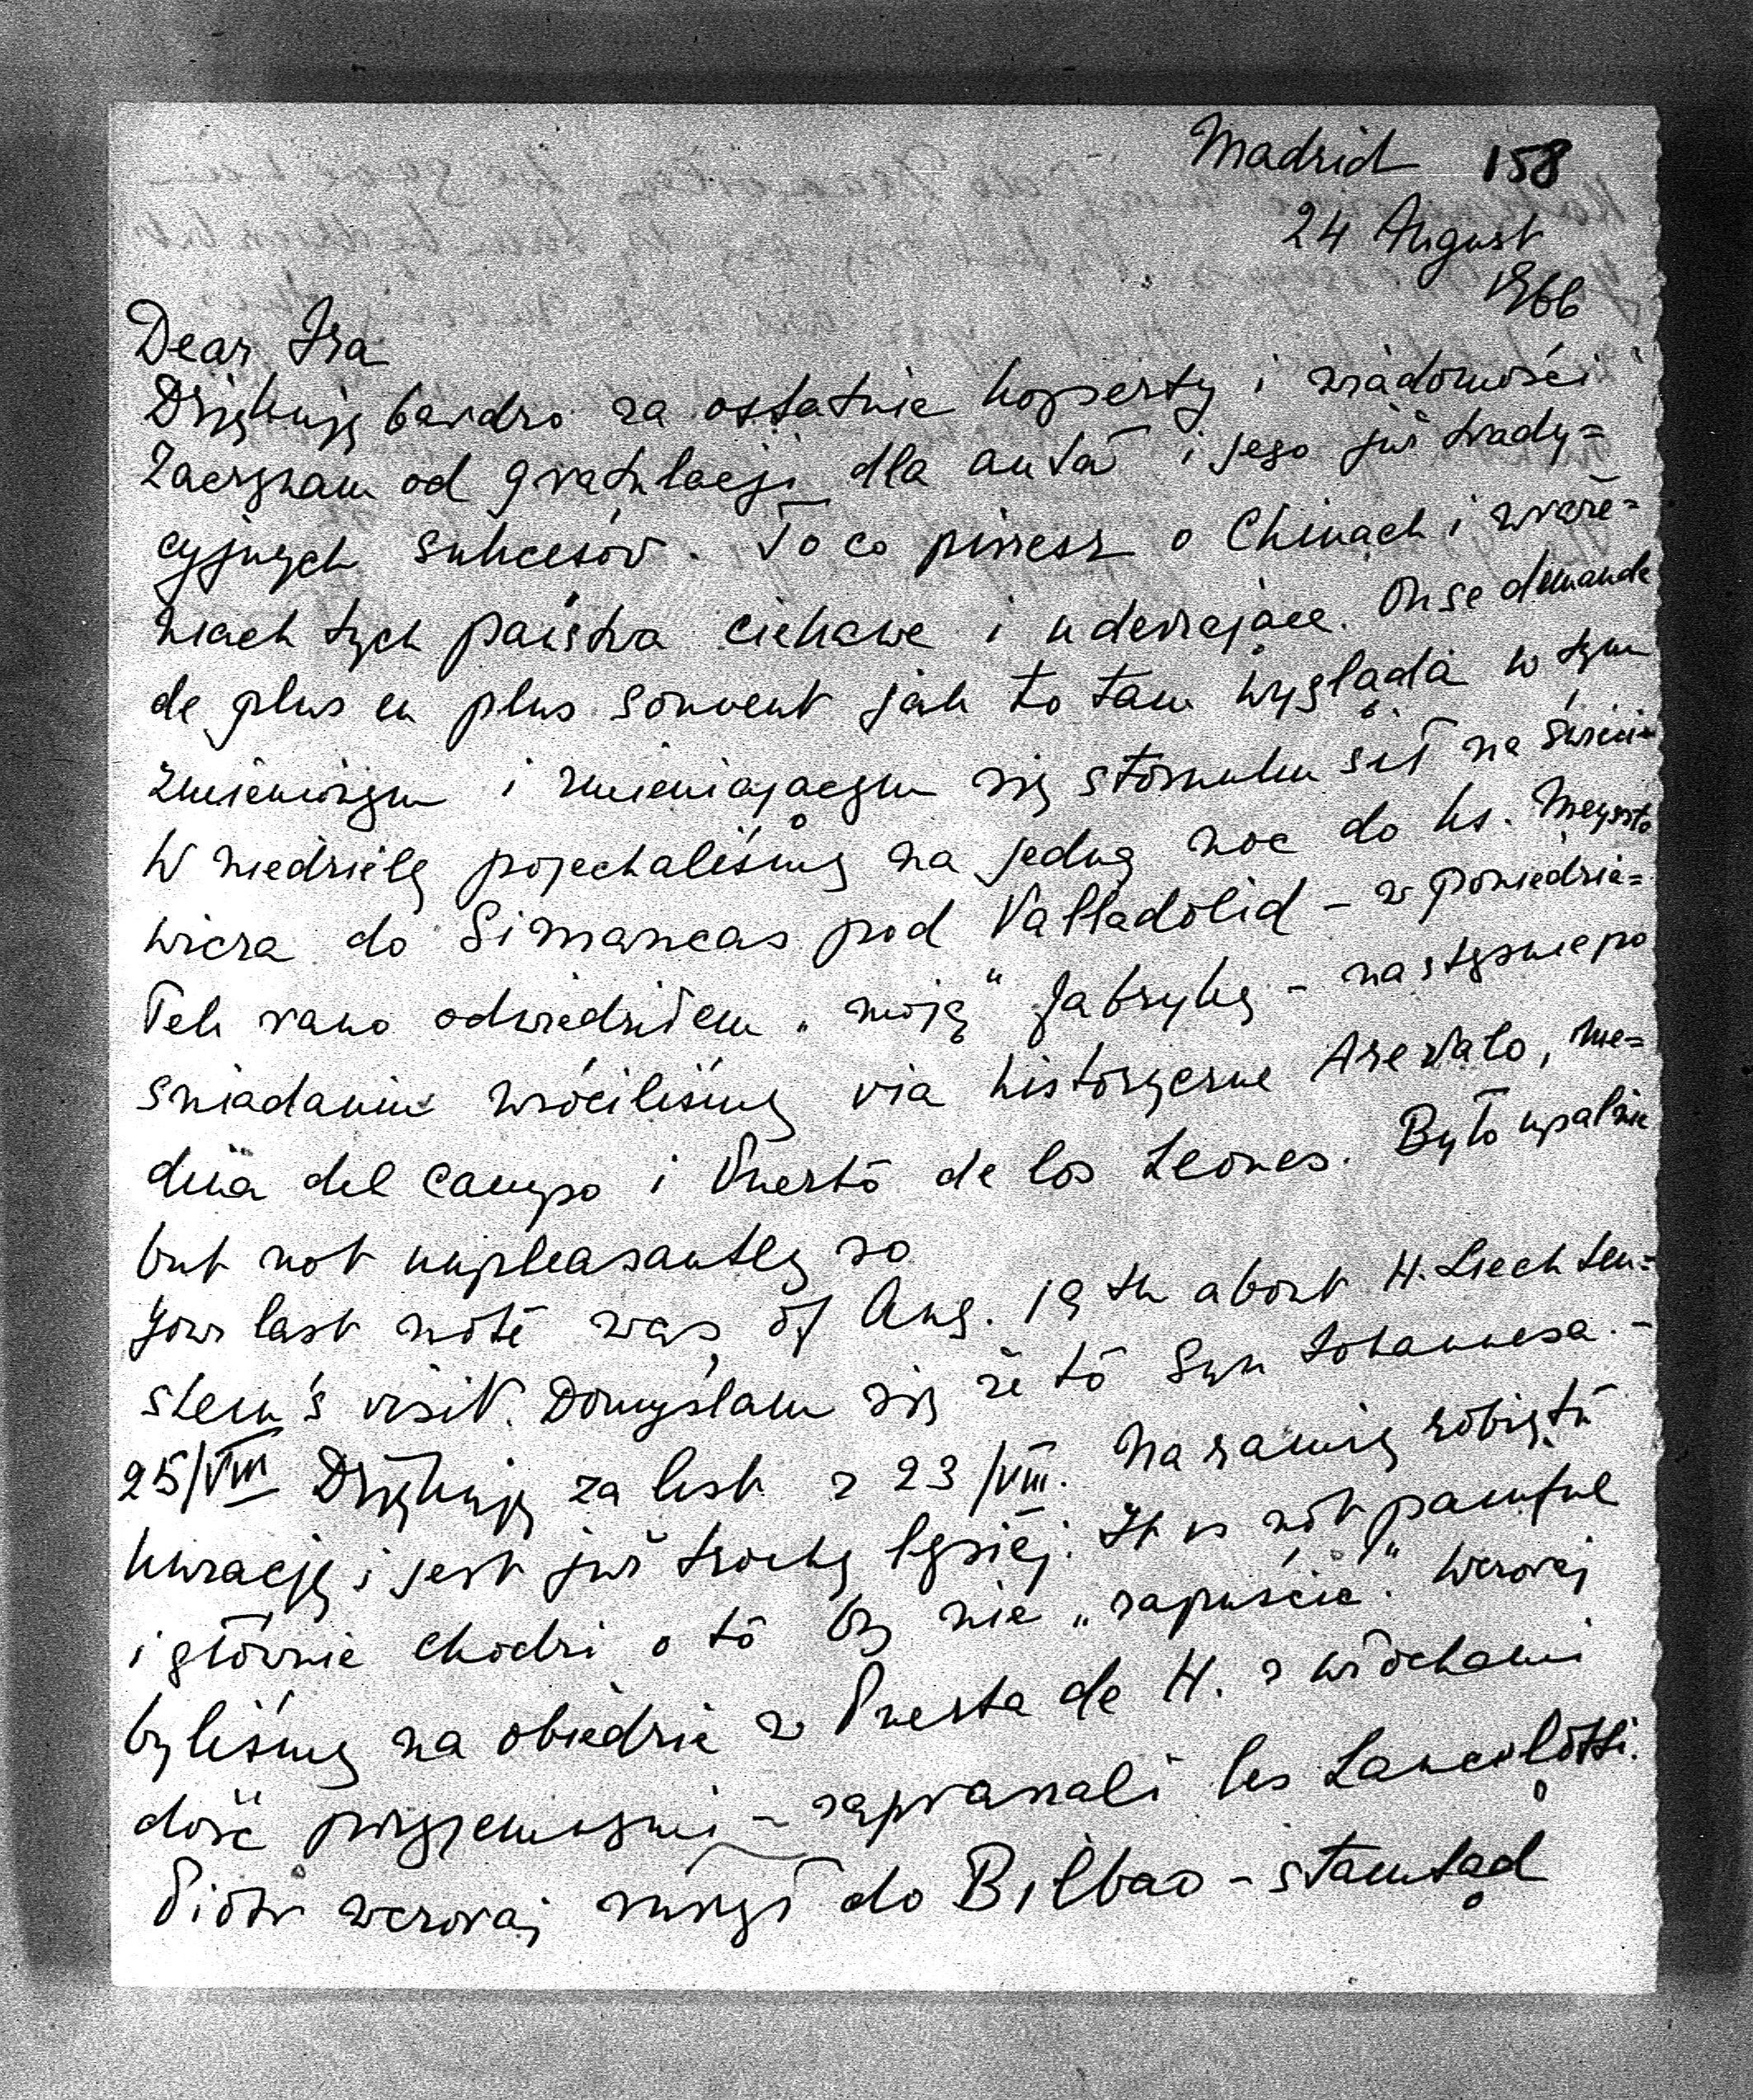 Madrid 158
24 August
1966
Dear Ira
Dziękuję bardzo za ostatnie koperty i wiadomości
Zaczynam od gratulacji dla auta i jego już trady=
cyjnych sukcesów. To co piszesz o Chinach i wraże=
niach tych państwa ciekawe i uderzające. On se demande
de plus en plus souvent jak to tam wygląda w tym
zmienionym i zmieniającym się stosunku sił na świecie
W niedzielę pojechaliśmy na jedną noc do ks. Meyszto
wicza do Simancas pod Valladolid – w poniedzia=
łek rano odwiedziłem „moją" fabrykę – następnie po
śniadaniu wróciliśmy via historyczne Arevalo, Me=
dina del Campo i Puerto de los Leones. Było upalnie
but not unpleasantly so
Your last note was of Aug. 19th about H. Liechten=
stein's visit. Domyślam się że to syn Johannesa. –
25/VIII Dziękuję za list z 23/VIII. Na ramię robię tu
kurację i jest już trochę lepiej. It is not painful
i głównie chodzi o to by nie „zapuścić". Wczoraj
byliśmy na obiedzie w Puerta de H. z Włochami
dość przyjemnymi – zapraszali les Lancelotti.
Piotr wczoraj ruszył do Bilbao – stamtąd